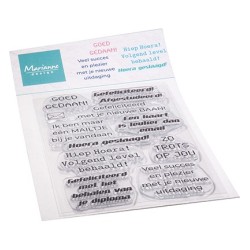 Marianne
DESIGN
GOED
GEDAAN!
Veel succes
en plezier
met je nieuwe
uitdaging
Hiep Hoera!
Volgend level
behaald!
Hoera geslaagd!
GOED
GEDAAN!
Gefeliciteerd!
Afgestudeerd!
met je nieuwe BAAN!
Ik ben maar
één MAILTJE
bij je vandaan
Een kaart
is leuker dan
email
Hoera geslaagd!
Hiep Hoera!
Volgend level
behaald!
ZO
TROTS
OP JOU
Gefeliciteerd
met het
behalen van
je diploma
Veel succes
en plezier
met je nieuwe
uitdaging